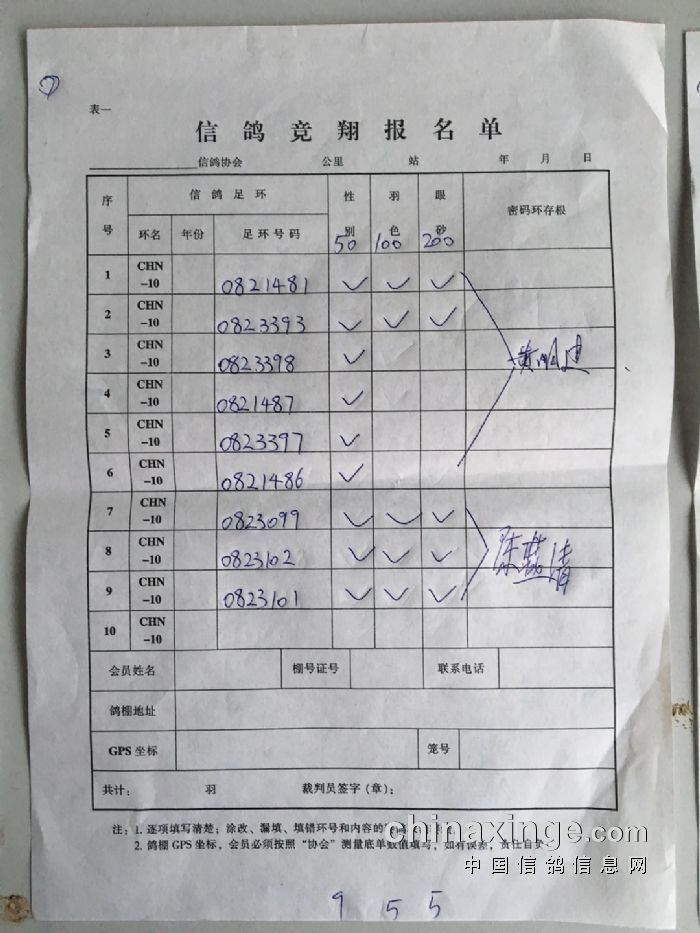 7
表一
信鸽竞翔报名单
信鸽协会 公里 站 年 月 日
序号 信鸽足环 性别 羽色 眼砂 密码环存根
环名 年份 足环号码 50 100 200
1 CHN-10 0821481 ✓ ✓ ✓
2 CHN-10 0823393 ✓ ✓ ✓
3 CHN-10 0823398 ✓
4 CHN-10 0821487 ✓
5 CHN-10 0823397 ✓
6 CHN-10 0821486 ✓
7 CHN-10 0823099 ✓ ✓ ✓
8 CHN-10 0823102 ✓ ✓ ✓
9 CHN-10 0823101 ✓ ✓ ✓
10 CHN-10
会员姓名 棚号证号 联系电话
鸽棚地址
GPS 坐标 笼号
共计： 羽 裁判员签字（章）：
注：1. 逐项填写清楚；涂改、漏填、填错环号和内容的
2. 鸽棚 GPS 坐标，会员必须按照“协会”测量底单数值填写，如有误差，责任自负
chinaxinge.com
中国信鸽信息网
9 5 5